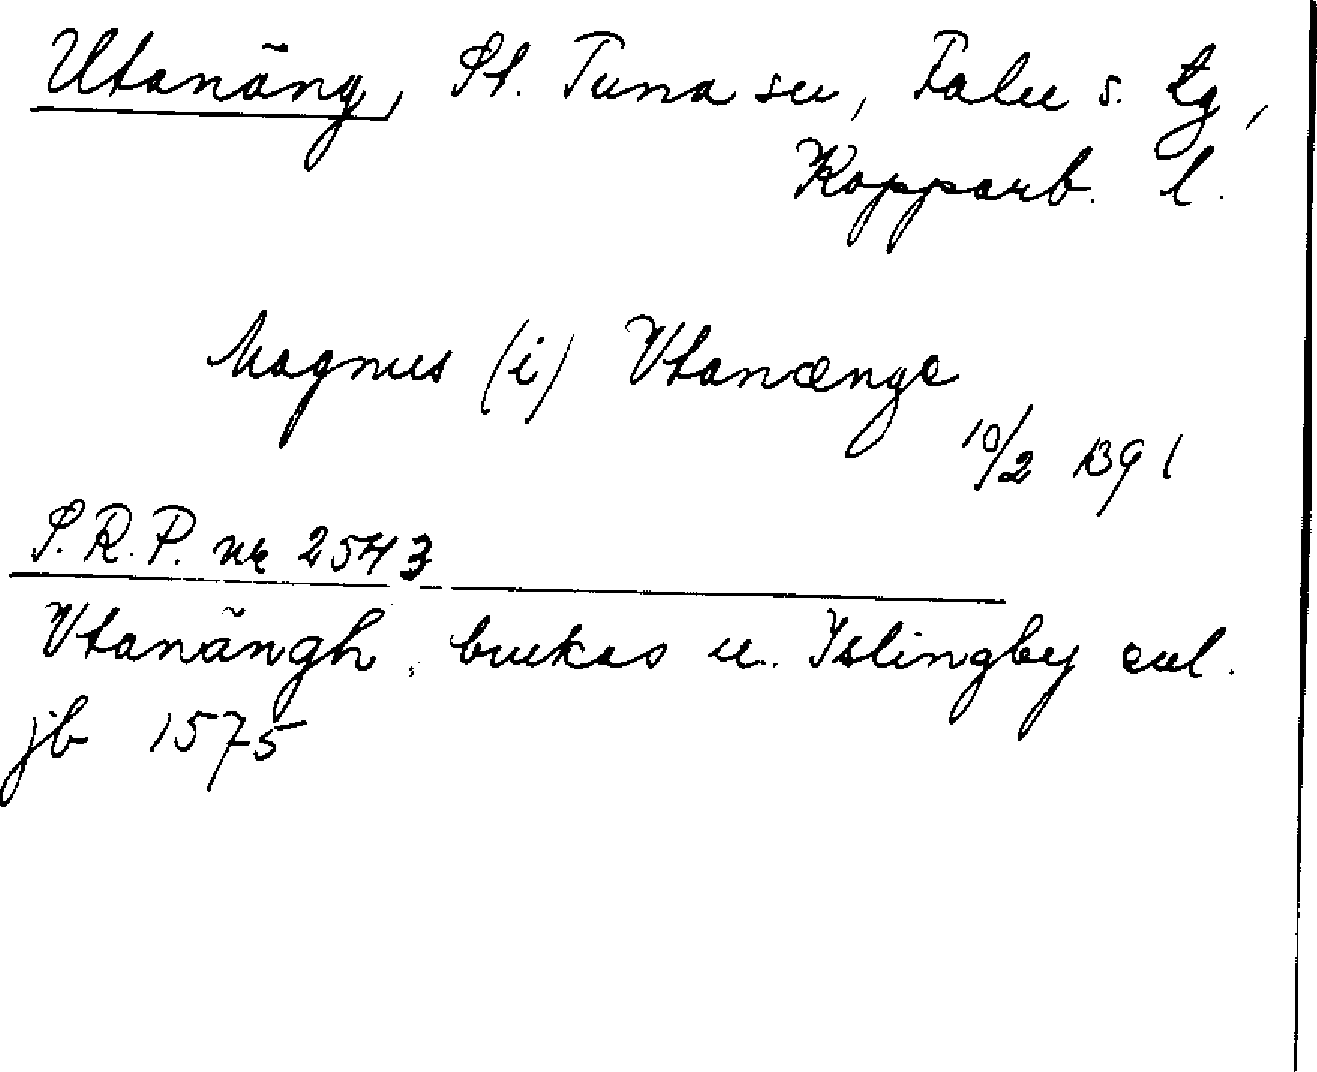 Utanäng, St. Tuna sn, Falu s. tg,
Kopparb. l.
Magnus (i) Vtanænge
10/2 1391
S.R.P. nr 2543
Vtanängh, brukas u. Islingby enl.
jb 1575